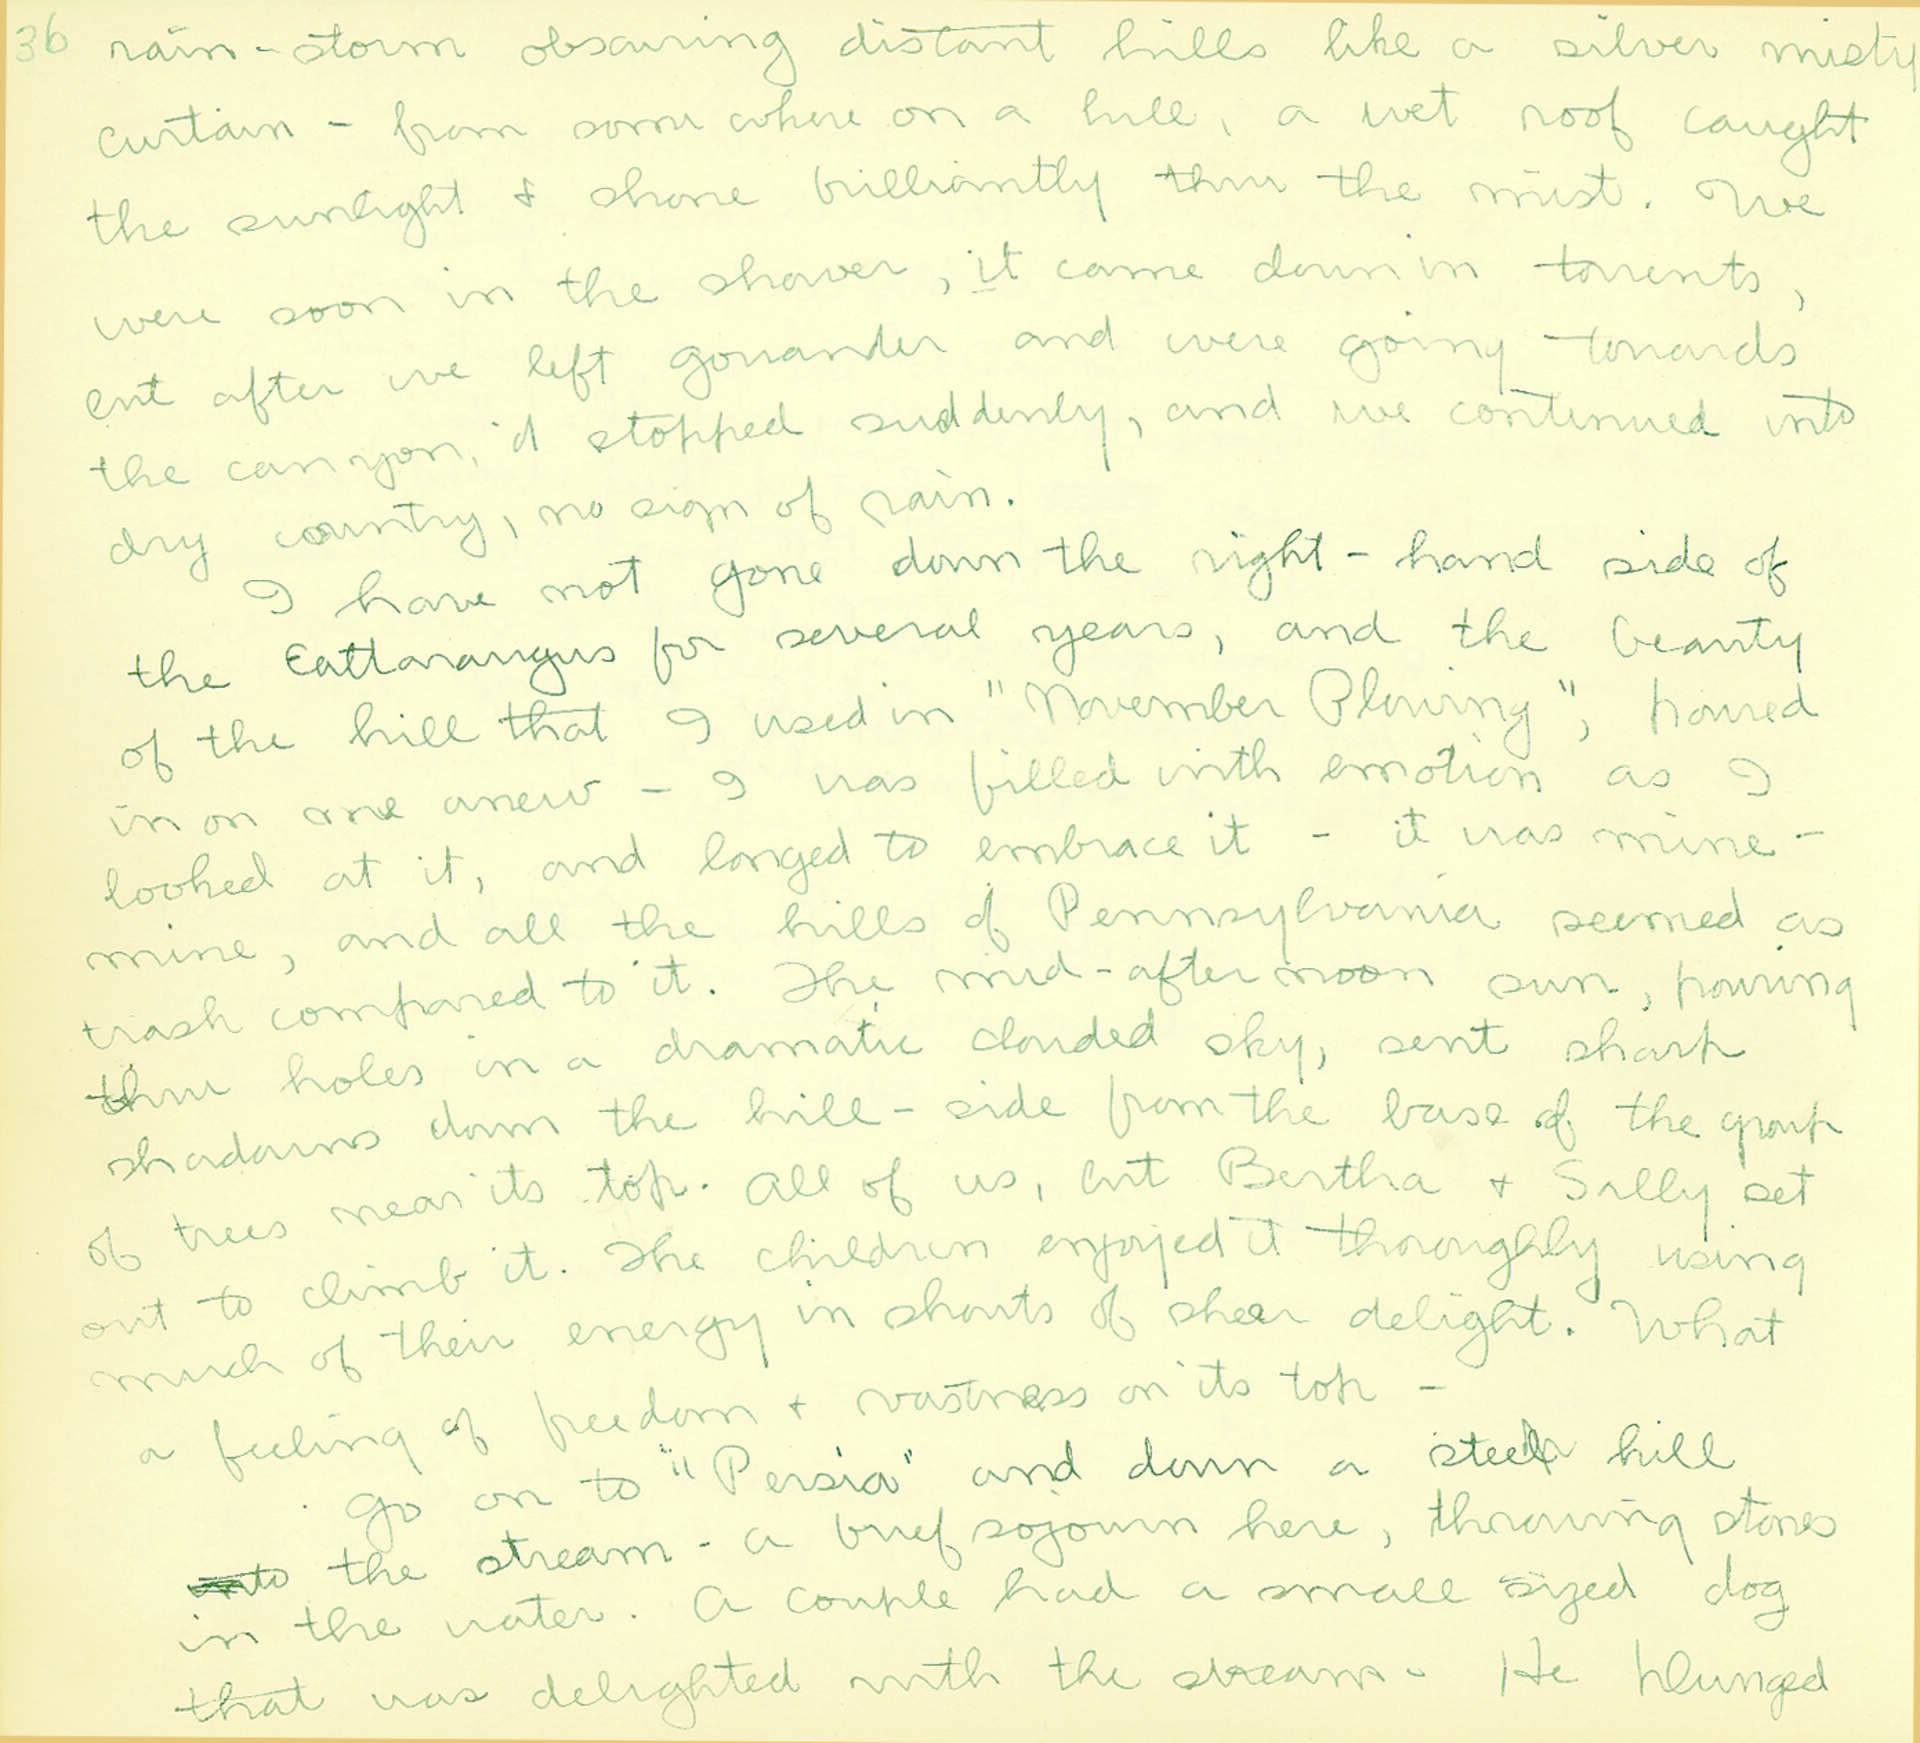 36 rain-storm obscuring distant hills like a silver misty
curtain - from some where on a hill, a wet roof caught
the sunlight & shone brilliantly thru the mist. We
were soon in the shower, it came down in torrents,
but after we left Gowander and were going towards
the canyon, it stopped suddenly, and we continued into
dry country, no sign of rain.
I have not gone down the right-hand side of
the Cattaraugus for several years, and the beauty
of the hill that I used in "November Plowing", poured
in on me anew - I was filled with emotion as I
looked at it, and longed to embrace it - it was mine -
mine, and all the hills of Pennsylvania seemed as
trash compared to it. The mid-afternoon sun, pouring
thru holes in a dramatic clouded sky, sent sharp
shadows down the hill-side from the base of the group
of trees near its top. All of us, but Bertha & Sally set
out to climb it. The children enjoyed it thoroughly using
much of their energy in shouts of sheer delight. What
a feeling of freedom & vastness on its top -
Go on to "Persia" and down a steep hill
to the stream - a brief sojourn here, throwing stones
in the water. A couple had a small sized dog
that was delighted with the stream - He plunged